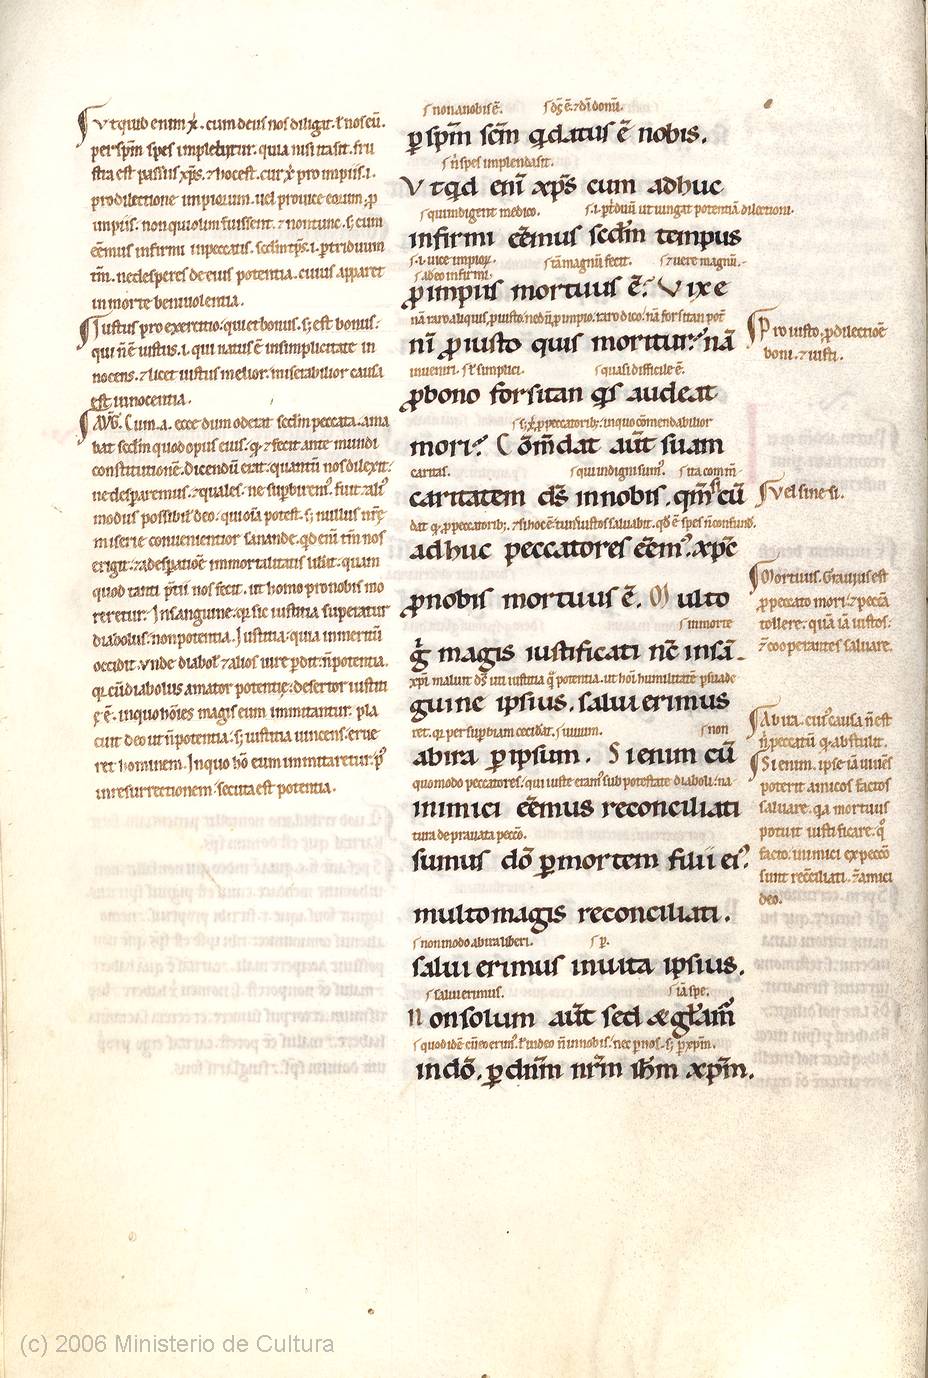 Vt quid enim x̄. cum deus nos diligit. ł nos eū.
per spm̄ spes implebitur. quia nisi ita sit. fru
stra est passus xp̄s. ⁊ hoc est. cur x̄ pro impiis .i.
pro dilectione impiorum. uel pro uice eorum. ꝓ
impiis. non qui olim fuissent. ⁊ non tunc. sꝫ cum
eēmus infirmi in peccatis. scdm̄ tp̄s .i. ꝑ triduum
tm̄. ne desperes de eius potentia. cuius apparet
in morte beniuolentia.
Iustus pro exercitio. qui et bonus. sꝫ est bonus.
qui n̄ ē iustus .i. qui natus ē in simplicitate in
nocens. ⁊ licet iustus melior. miserabilior causa
est innocentia.
AVG. Cum .a. ecce dum oderat scdm̄ peccata. ama
bat scdm̄ quod opus eius. ⁊ fecit ante mundi
constitutionē. Dicendū erat. quantū nos dilexit.
ne desparemus. ⁊ quales. ne supbirem⁹. fuit ali⁹
modus possibil̄ deo. cui oīa potest. sꝫ nullus nr̄ę
miserie conuenientior sanande. qd enī tm̄ nos
erigit. ⁊ a desperatiōe immortalitatis liberat. quam
quod tanti p̄tii nos fecit. ut homo pro nobis mo
reretur. In sanguine. qꝫ sic iustitia superatur
diabolus. non potentia. Iustitia. quia inmeritū
occidit. vnde diabol̄ ⁊ alios iure pdit. n̄ potentia.
qꝫ cū diabolus amator potentię. desertor iustiti
ę ē. in quo hōies magis eum immitantur. pla
cuit deo ut n̄ potentia. sꝫ iustitia uincens. erue
ret hominem. In quo hō eum immitaretur. p⁹
in resurrectionem secuta est potentia.
s non a nobis ē. s dꝫ ē. ⁊ dī donū.
ꝑ spm̄ scm̄ q datus ē nobis.
s n̄ spes implenda sit.
Vt qd enī xp̄s cum adhuc
s qui indigent medico. s .i. ꝑ tduū ut iungat potentiā dilectioni.
infirmi eēmus scdm̄ tempus
s .i. uice impioꝝ. s tā magnū fecit. s ⁊ uere magnū.
s adeo infirmi.
ꝓ impiis mortuus ē. Vixe
nā raro aliquis ꝓ iusto. nedū ꝓ impio. raro dico. nā forsitan pot̄
nī ꝓ iusto quis moritur. nā
inueniri. sł simplici. s quasi difficile ē.
ꝓ bono forsitan q̄s audeat
s sꝫ x̄ ꝓ peccatoribꝫ. in quo cōmendabilior
mori. Cōm̄dat aūt suam
caritas. s qui indigni sum⁹. s ita comm̄
caritatem ds̄ in nobis. qm̄ si cū
dat qꝫ ꝓ peccatoribꝫ. ⁊ si hoc ē. tunc iustos saluabit. qd ē spes n̄ confund.
adhuc peccatores eēm⁹. xp̄c
ꝓ nobis mortuus ē. Multo
s in morte
g̊ magis iustificati nc̄ in sā
xpī maluit ds̄ uti iustitia q̄ potentia. ut hoī humilitatē psuade
guine ipsius. salui erimus
ret. qꝫ per supbiam cecidat. s non
ab ira ꝑ ipsum. Si enim cū
quomodo peccatores. qui iuste eram⁹ sub potestate diaboli. na
inimici eēmus reconciliati
tura deprauata peccō.
sumus dō ꝑ mortem filii ei⁹.
multo magis reconciliati.
s non modo ab ira liberi. s ꝑ.
salui erimus in uita ipsius.
s salui erimus. s iā spe.
Non solum aūt sed ⁊ gl̄am⁹
in dō. ꝑ dn̄m nr̄m ih̄m xp̄m.
Pro iusto. ꝓ dilectiōe
boni. ⁊ iusti.
Vel sine si.
Mortuus. Grauius est
ꝓ peccato mori. ⁊ peccā
tollere. quā iā iustos.
⁊ cooperantes saluare.
Ab ira. cui⁹ causa n̄ est
n̄ peccatū q abstulit.
Si enim. ipse iā iustos
poterit amicos factos
saluare. q a mortuus
potuit iustificare. q̄
facto. inimici ex peccō
sunt recc̄iliati. ⁊ amici
deo.
(c) 2006 Ministerio de Cultura